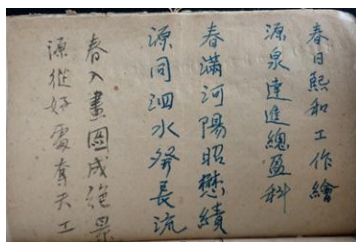 春日熙和工作繪
源泉達進總盈科
春滿河陽昭懋績
源同泗水發長流
春入畫圖成絕景
源從好處奪天工